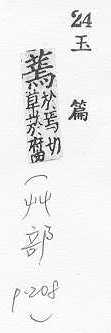 24
玉篇
蔫
於焉切
草菸腐
(艸部 p.208)